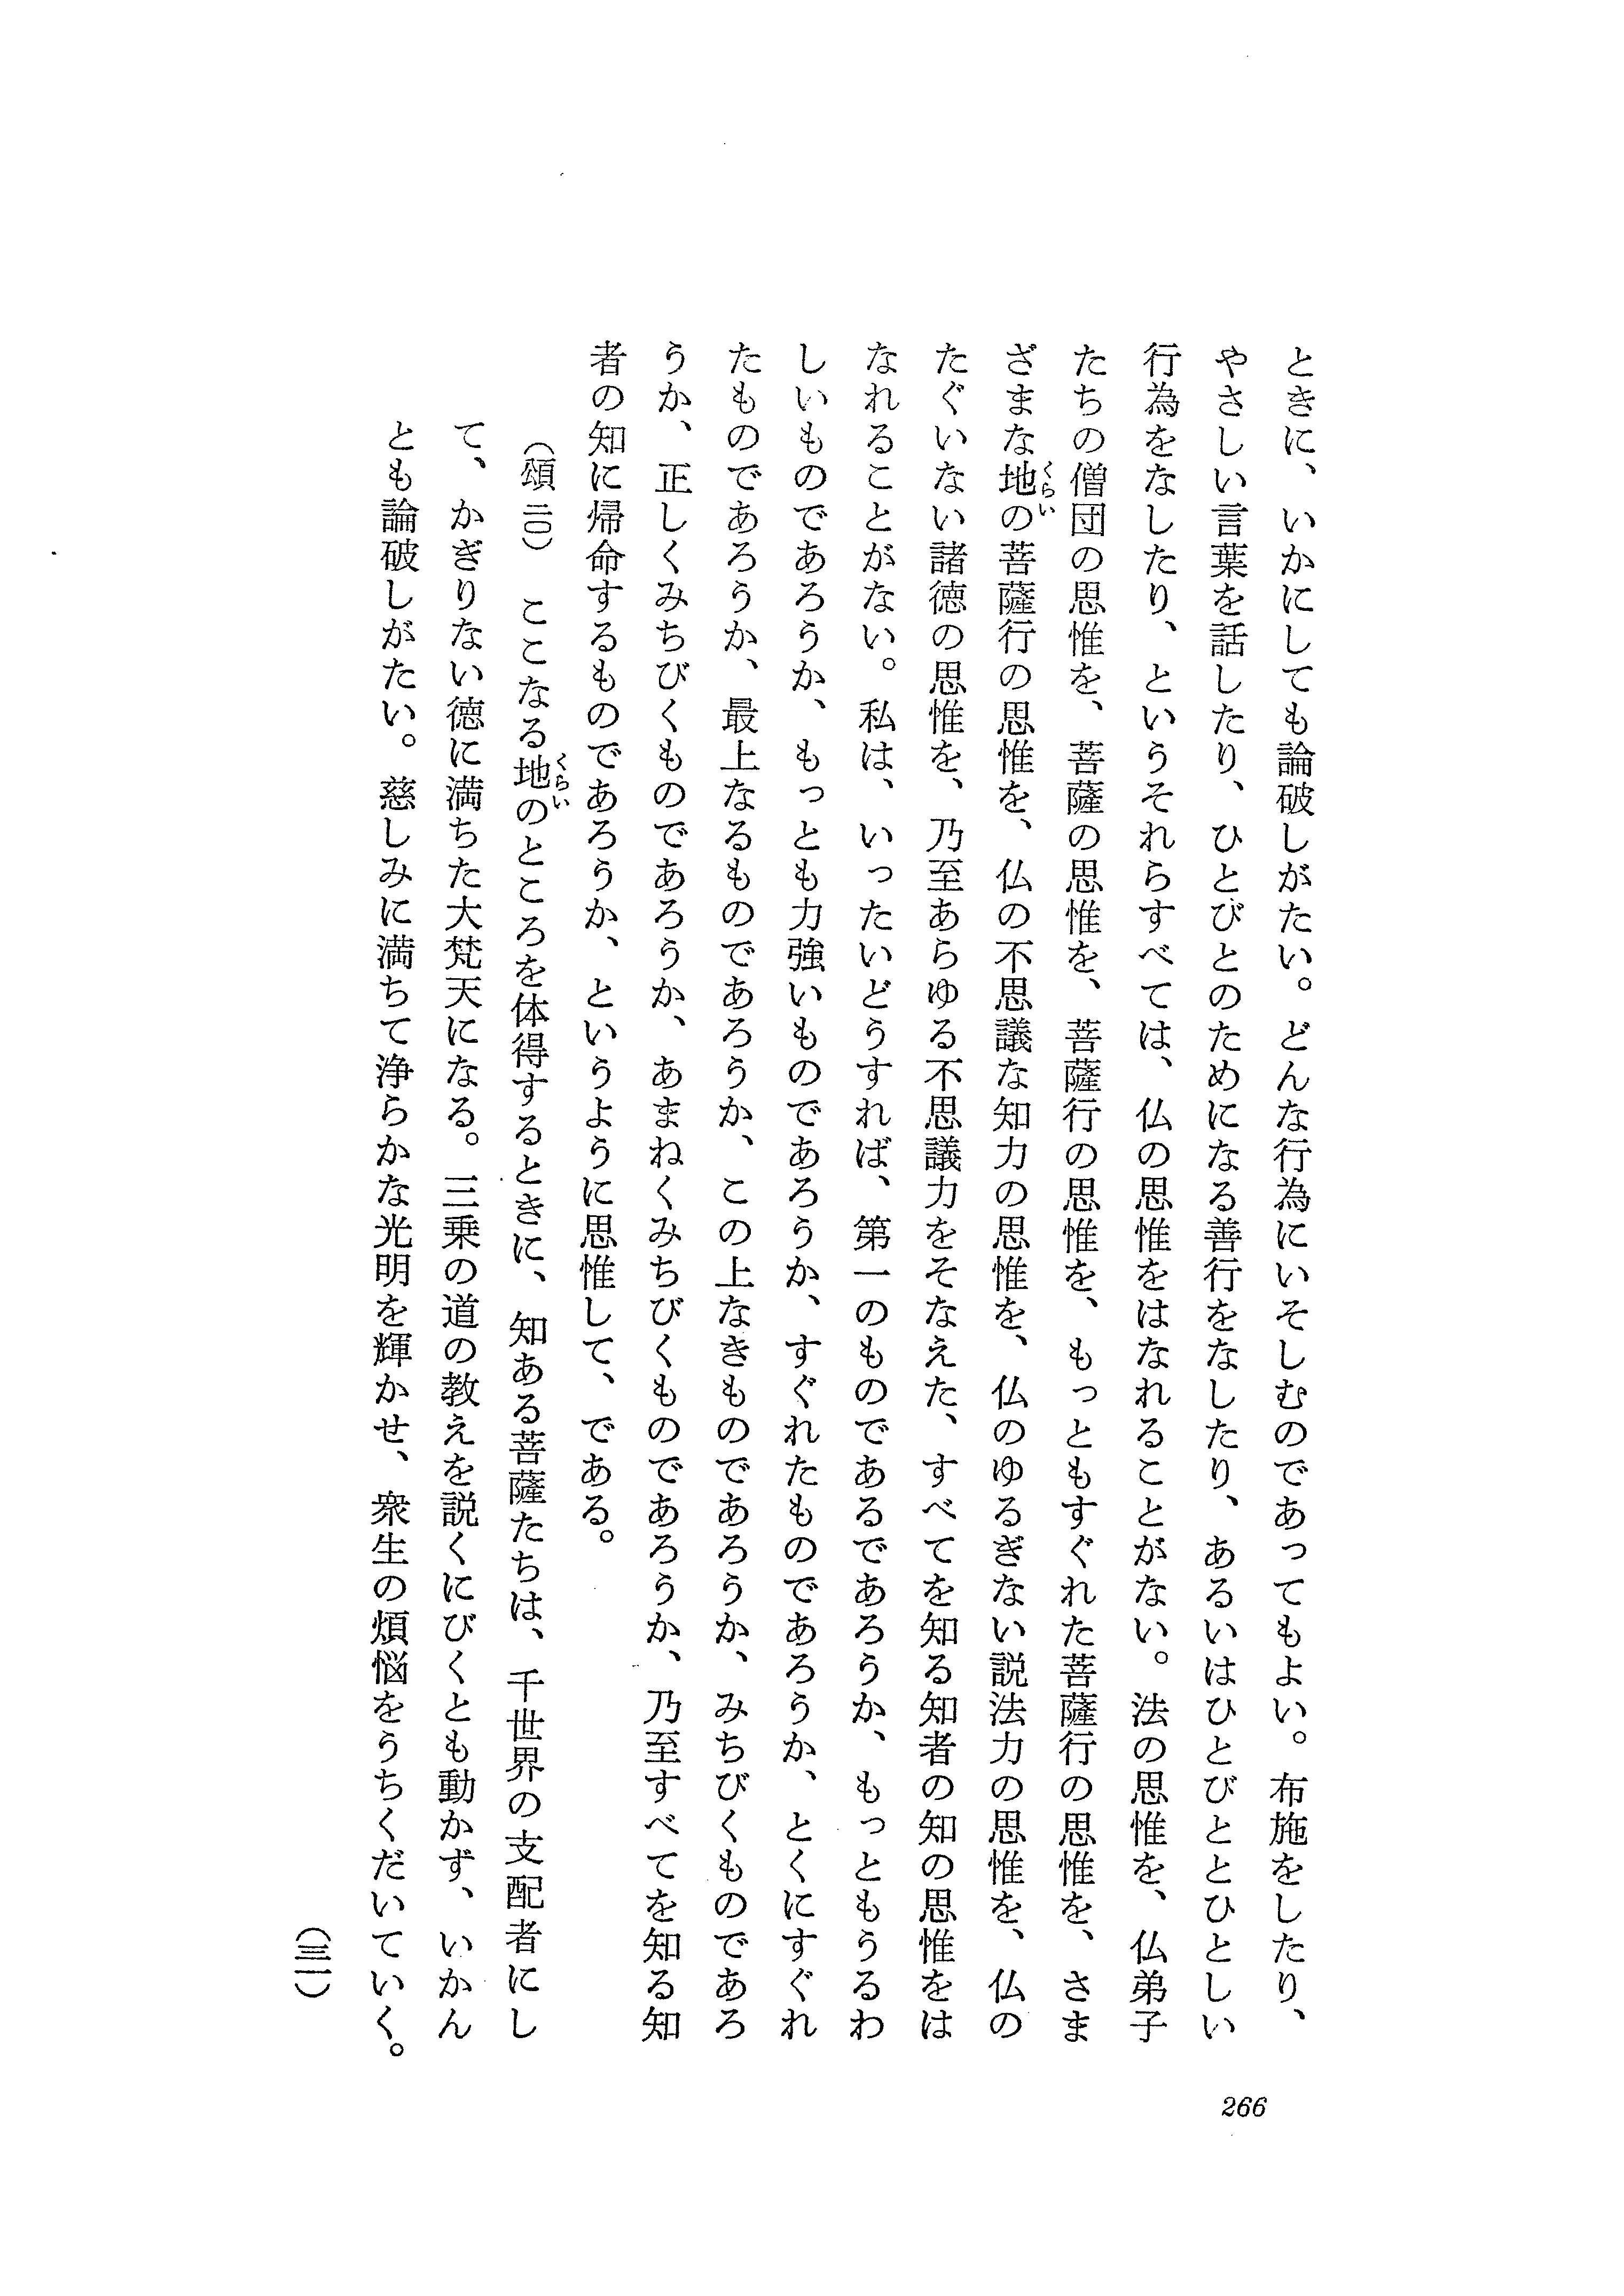 ときに、いかにしても論破しがたい。どんな行為にいそしむのであってもよい。布施をしたり、
やさしい言葉を話したり、ひとびとのためになる善行をなしたり、あるいはひとびととひとしい
行為をなしたり、というそれらすべては、仏の思惟をはなれることがない。法の思惟を、仏弟子
たちの僧団の思惟を、菩薩の思惟を、菩薩行の思惟を、もっともすぐれた菩薩行の思惟を、さま
ざまな地くらいの菩薩行の思惟を、仏の不思議な知力の思惟を、仏のゆるぎない説法力の思惟を、仏の
たぐいない諸徳の思惟を、乃至あらゆる不思議力をそなえた、すべてを知る知者の知の思惟をは
なれることがない。私は、いったいどうすれば、第一のものであるであろうか、もっともうるわ
しいものであろうか、もっとも力強いものであろうか、すぐれたものであろうか、とくにすぐれ
たものであろうか、最上なるものであろうか、この上なきものであろうか、みちびくものであろ
うか、正しくみちびくものであろうか、あまねくみちびくものであろうか、乃至すべてを知る知
者の知に帰命するものであろうか、というように思惟して、である。
（頌 二〇） ここなる地くらいのところを体得するときに、知ある菩薩たちは、千世界の支配者にし
て、かぎりない徳に満ちた大梵天になる。三乗の道の教えを説くにびくとも動かず、いかん
とも論破しがたい。慈しみに満ちて浄らかな光明を輝かせ、衆生の煩悩をうちくだいていく。
（三一）
266